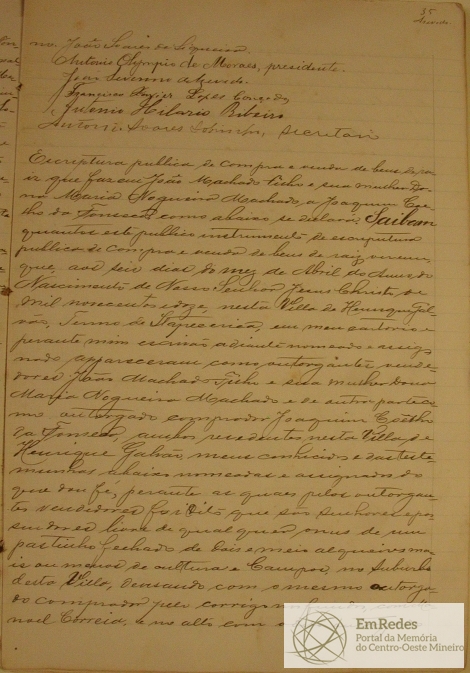 35
Azevedo
no. João Soares de Siqueira
Antonio Olympio de Moraes, presidente.
João Severino de Azevedo
Francisco Xavier Lopes Cançado
Antonio Hilario Ribeiro
Antonio Soares secretario
Escriptura publica de compra e venda de bens de ra-
iz que fazem João Machado Filho e sua mulher Do-
na Maria Nogueira Machado, a Joaquim Coe-
lho da Fonseca, como abaixo se declara: Saibam
quantos este publico instrumento de escriptura
publica de compra e venda de bens de raiz virem,
que, aos seis dias do mez de Abril do Anno do
Nascimento de Nosso Senhor Jesus Christo de
mil novecentos e doze, nesta Villa de Henrique Gal-
vão, Termo de Itapecerica, em meu cartorio e
perante mim escrivão adiante nomeado e assig-
nado appareceram como outorgantes vende-
dores João Machado Filho e sua mulher Dona
Maria Nogueira Machado e de outra parte co-
mo outorgado comprador Joaquim Coelho
da Fonseca, ambos residentes nesta Villa de
Henrique Galvão, meus conhecidos e das teste-
munhas abaixo nomeadas e assignadas do
que dou fé, perante as quaes pelos outorgan-
tes vendedores foi dito que são senhores e pos-
suidores livre de qualquer onus de um
pastinho fechado de dois e meio alqueires ma-
is ou menos de culturas e Campos, no Suburbio
desta Villa, devisando com o mesmo outorga-
do comprador pelo corrego
noel Correia, e no alto com o
EmRedes
Portal da Memória
do Centro-Oeste Mineiro